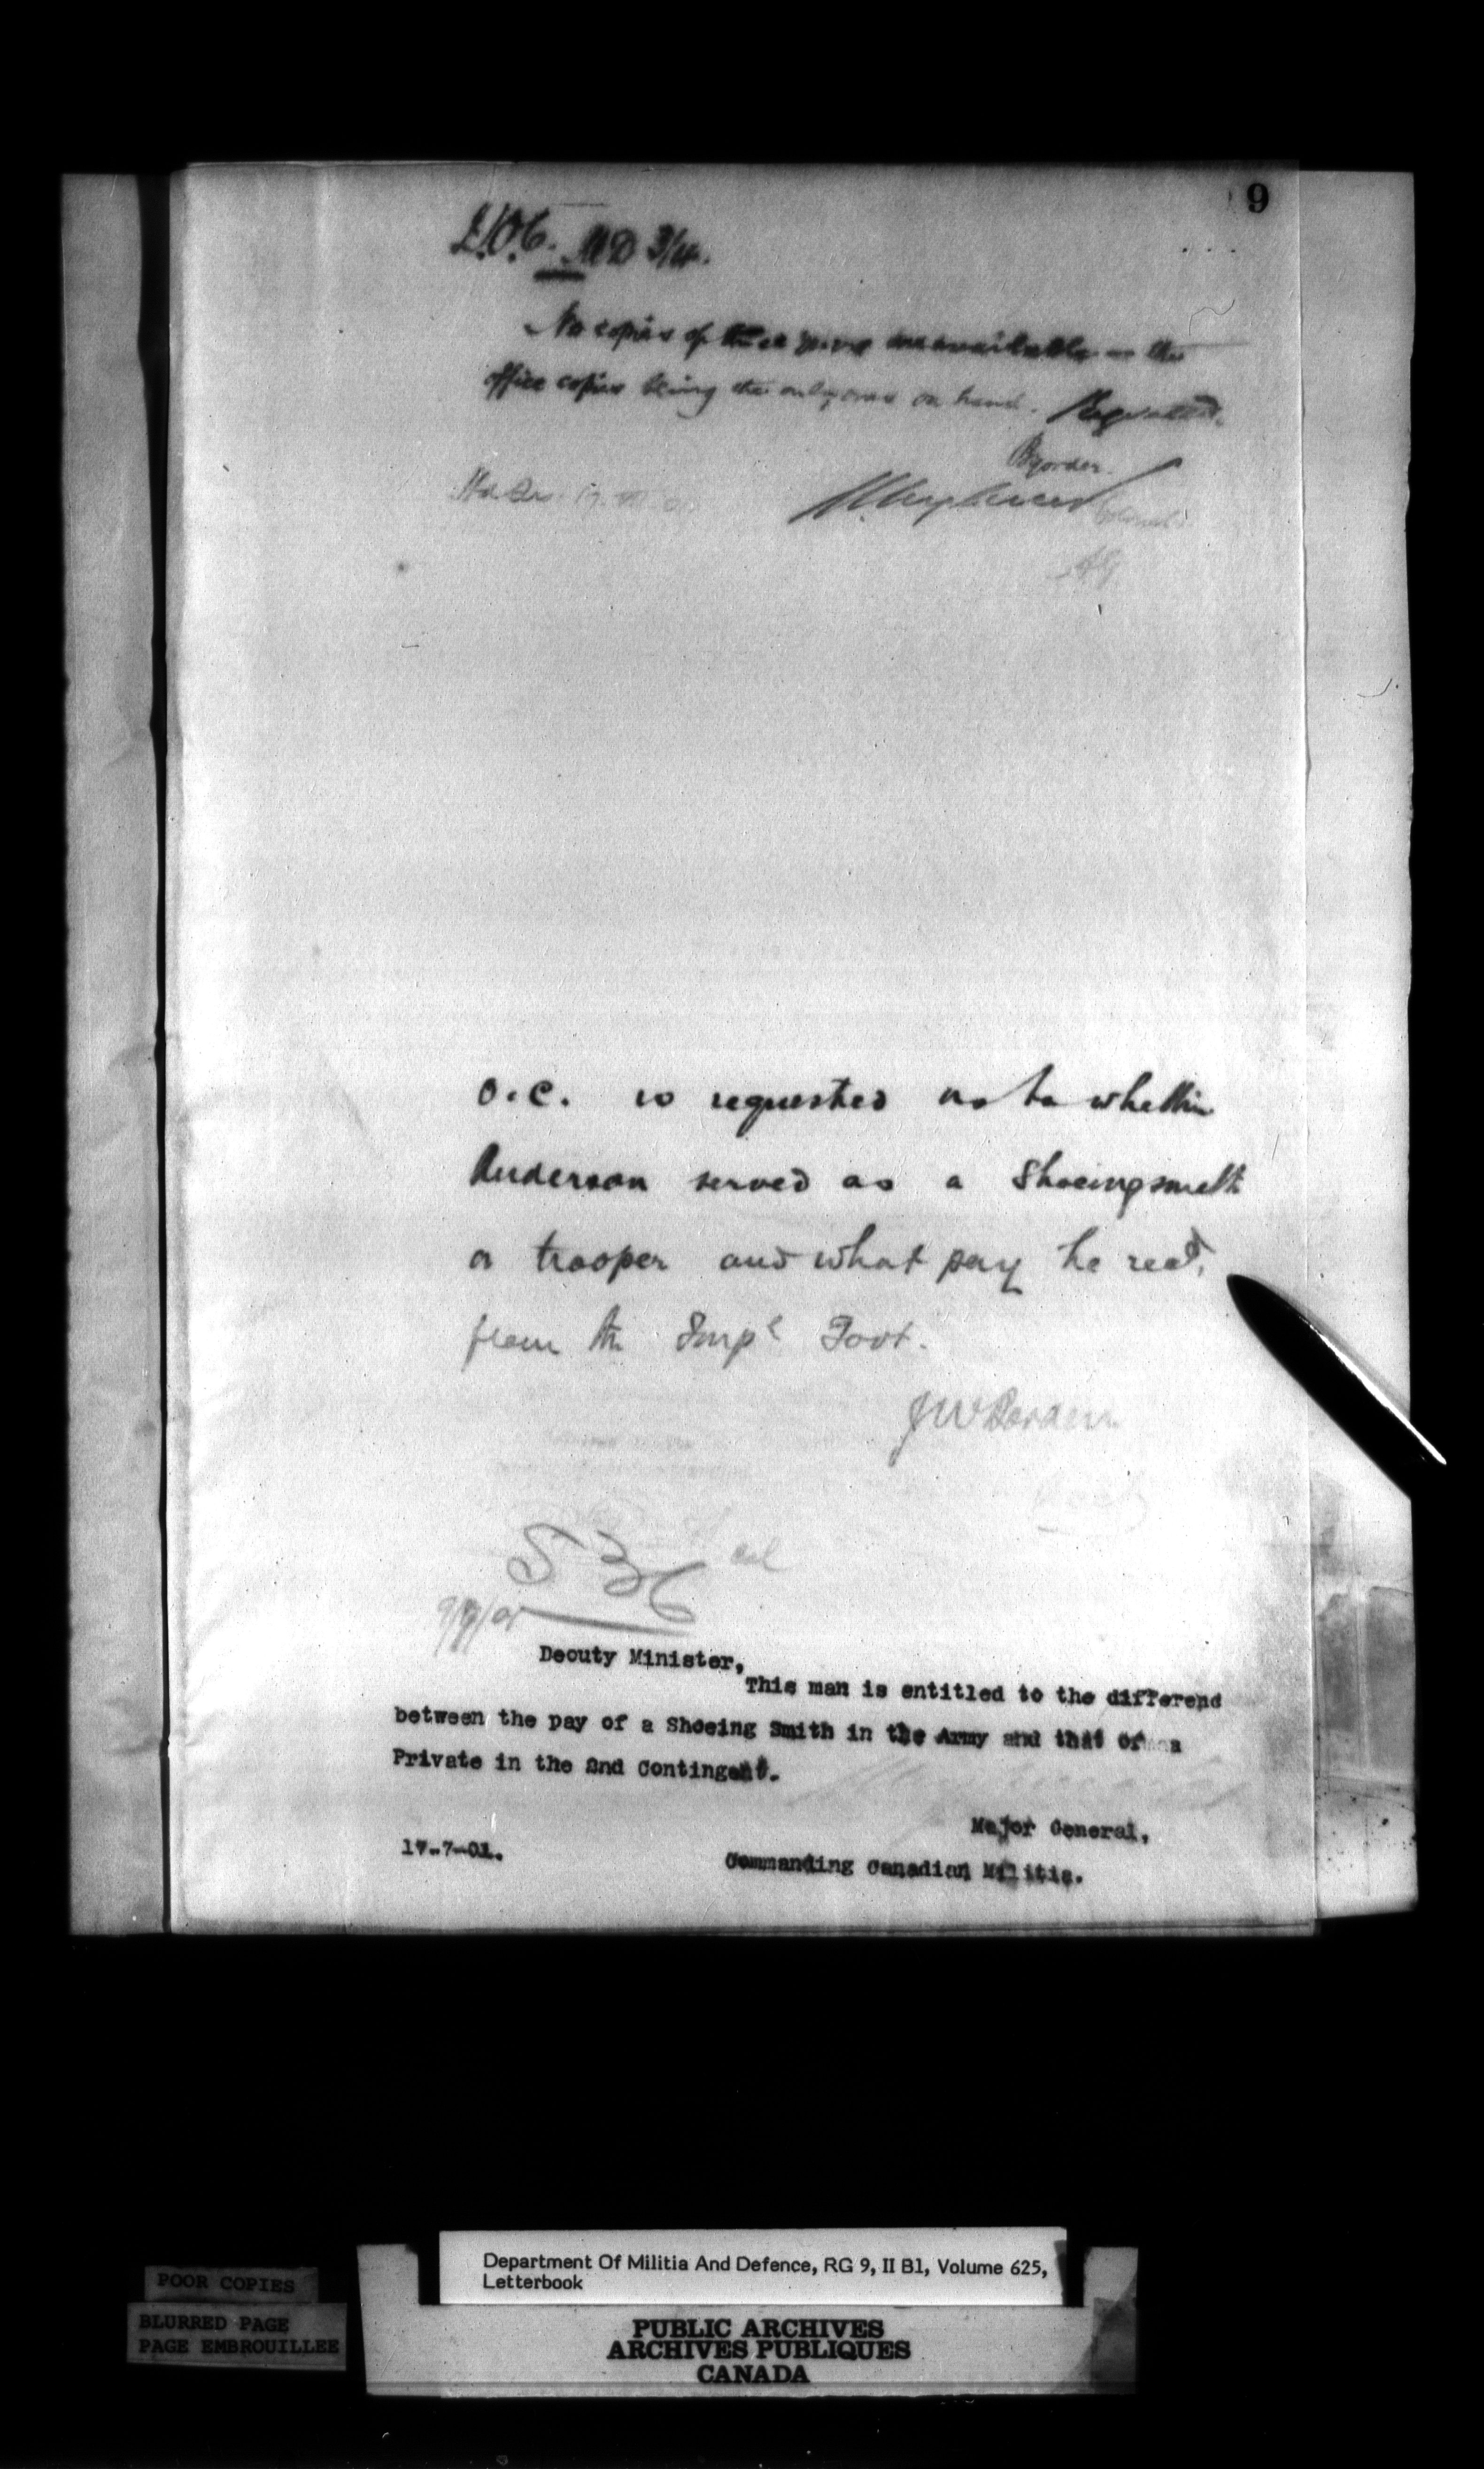 9
D.O.C. MD 3/4.
No copies of these are available — the
office copies being the only ones on hand. Regretted.
By order.
Hd Qrs. 17.
Colonel
AG
O.C. is requested as to whether
Anderson served as a Shoeingsmith
or trooper and what pay he recd.
from the Impl Govt.
JWBorden
536
9/7/01
Deouty Minister,
This man is entitled to the differend
between the pay of a Shoeing Smith in the Army and that of a
Private in the 2nd Contingent.
Major General,
17-7-01.
Commanding Canadian Militia.
Department Of Militia And Defence, RG 9, II B1, Volume 625,
Letterbook
POOR COPIES
BLURRED PAGE
PAGE EMBROUILLEE
PUBLIC ARCHIVES
ARCHIVES PUBLIQUES
CANADA